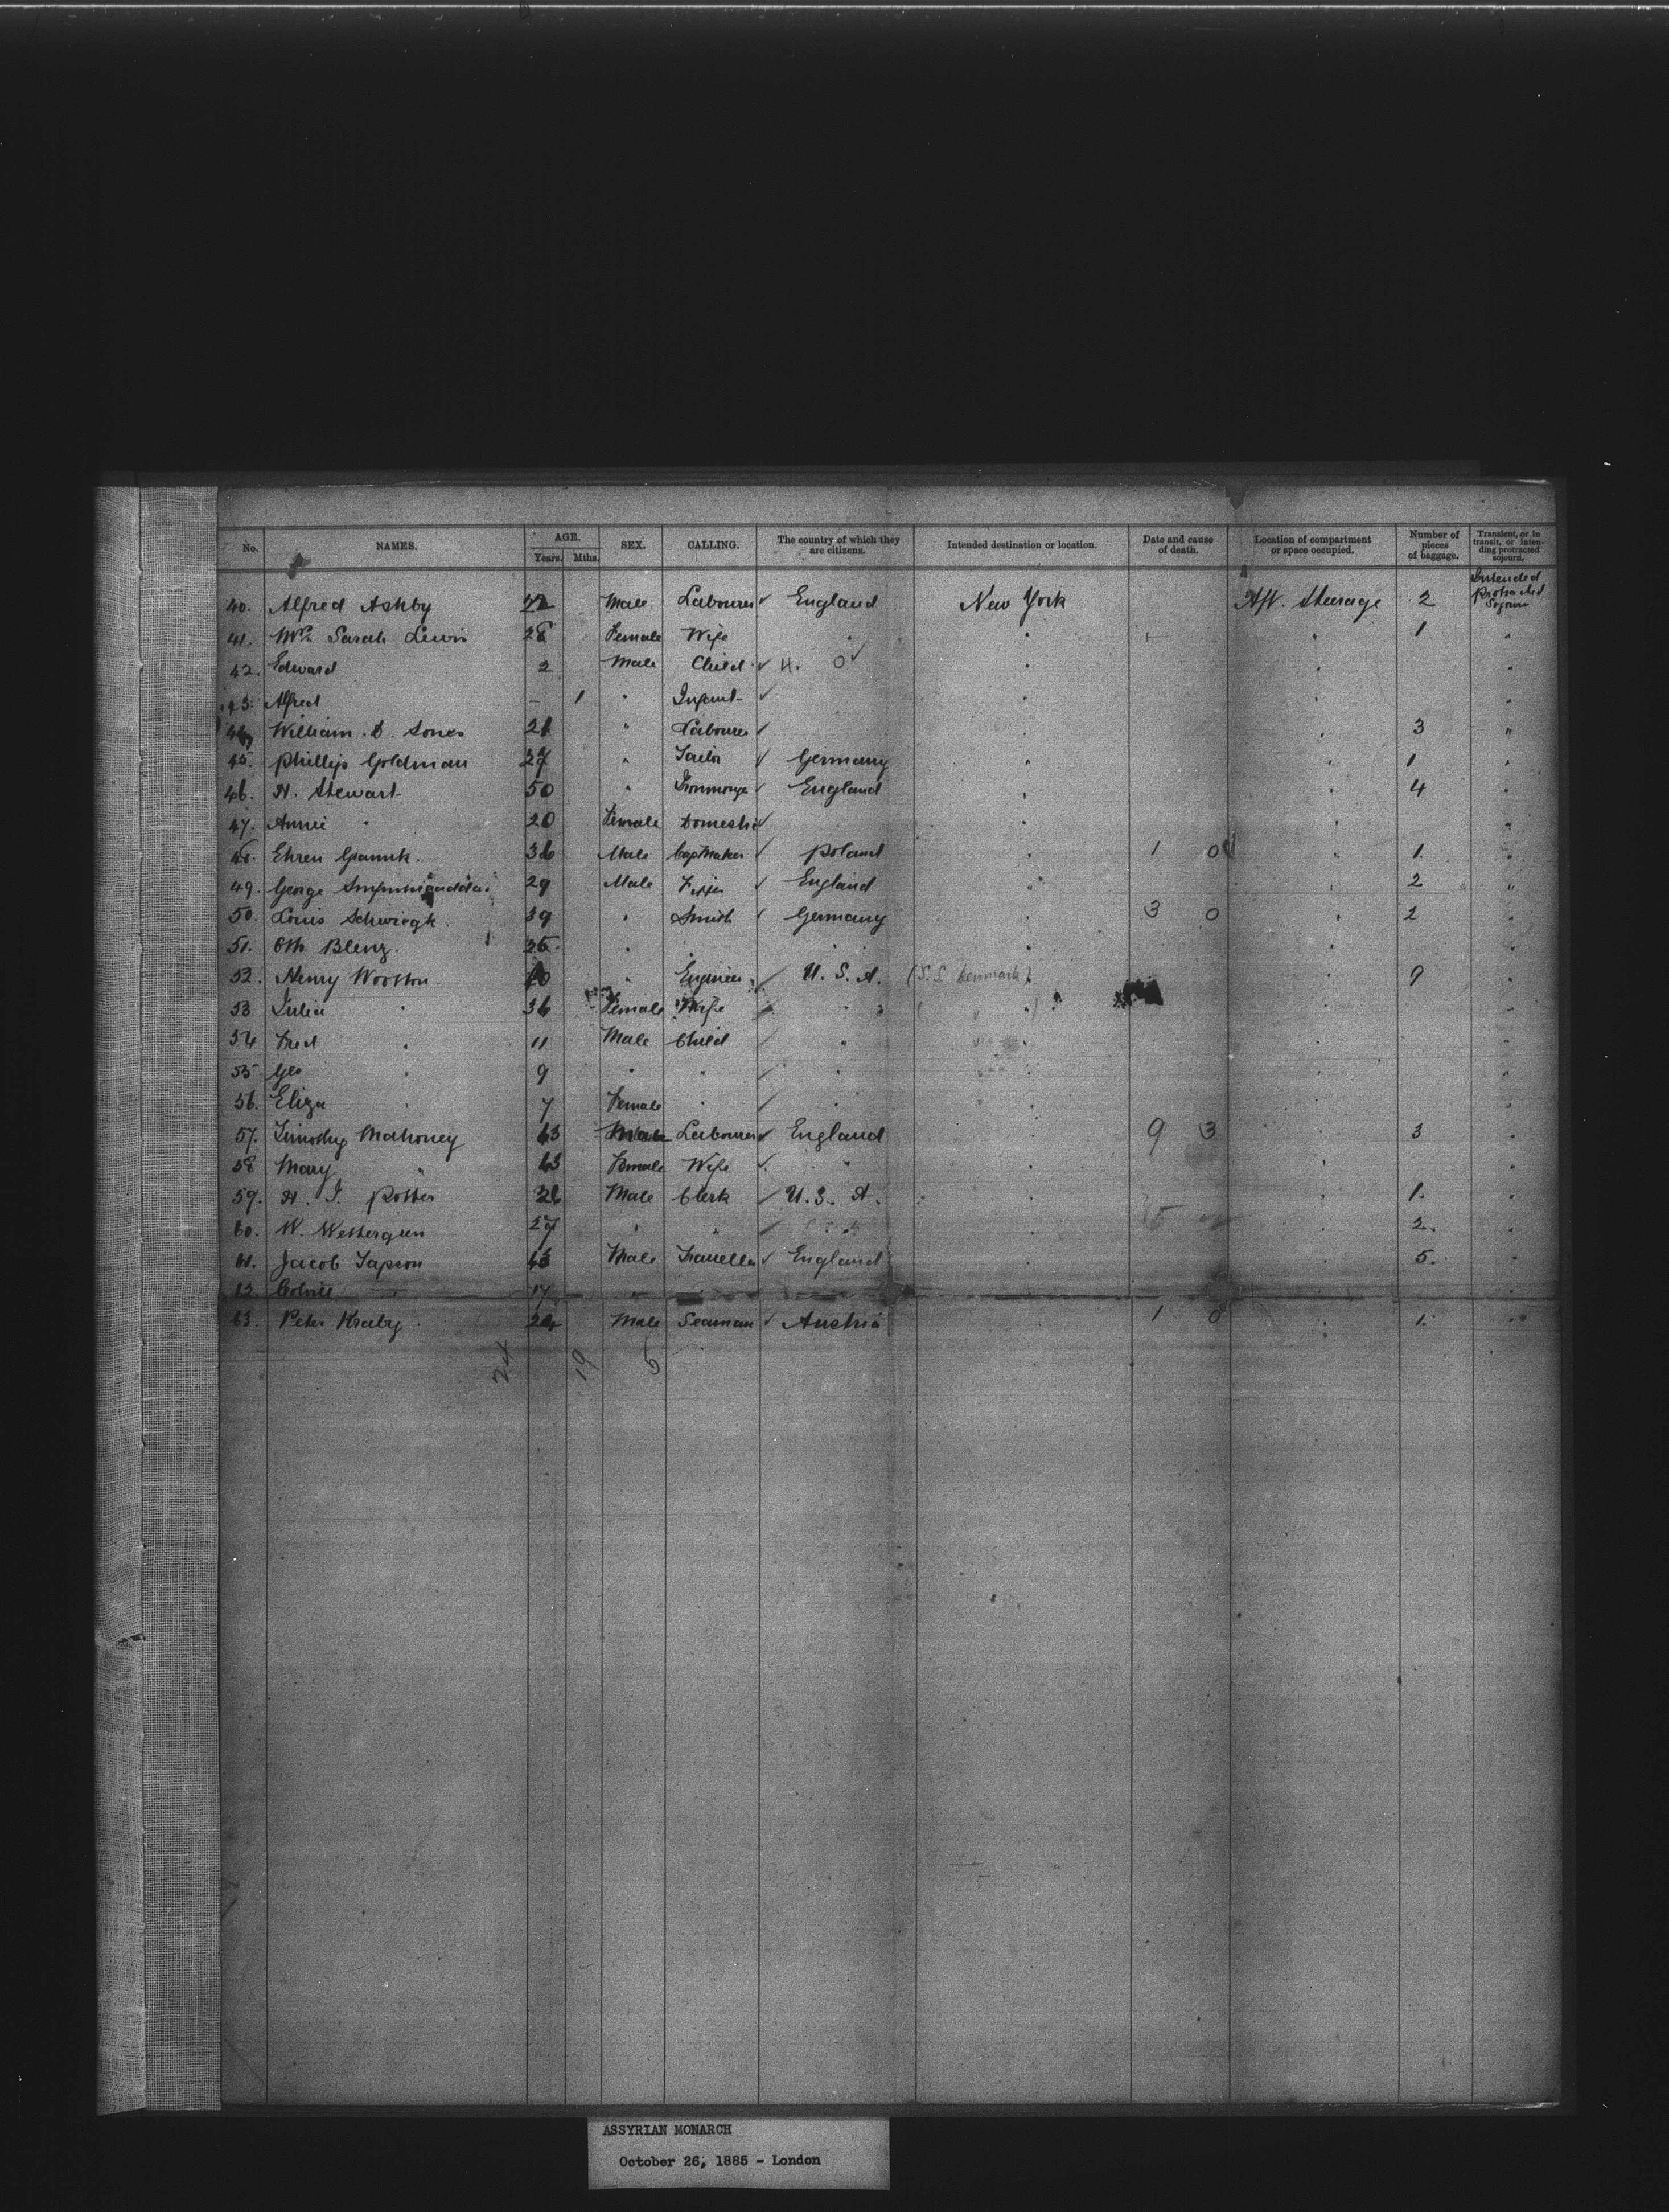 No. NAMES. AGE. Years. Mths. SEX. CALLING. The country of which they are citizens. Intended destination or location. Date and cause of death. Location of compartment or space occupied. Number of pieces of baggage. Transient, or in transit, or intending protracted sojourn.
40. Alfred Ashby 22 Male Labourer England New York Aft. Steerage 2 Intended Protracted Sojourn
41. Mrs Sarah Lewis 28 Female Wife " " " 1 "
42. Edward 2 Male Child 4. 0 " " "
43. Alfred – 1 " Infant " " "
44. William . D. Jones 21 " Labourer " " 3 "
45. Phillip Goldman 27 " Tailor Germany " " 1 "
46. H. Stewart 50 " Ironmonger England " " 4 "
47. Annie " 20 Female Domestic " " "
48. Ehren 36 Male Cap Maker Poland " 1 0 " 1. "
49. George 29 Male England " " 2 "
50. Louis 39 " Smith Germany " 3 0 " 2 "
51. Otto Blenz. 25. " " " " " "
52. Henry Wootton 40 " Engineer U. S. A. (S.S. Denmark) " 9 "
53 Julia " 36 Female Wife " " " "
54 Fred " 11 Male Child " " " "
55 Geo " 9 " " " " " "
56. Eliza " 7 Female " " " " "
57. Timothy Mahoney 63 Male Labourer England " 9 3 " 3 "
58 Mary " 63 Female Wife " " " "
59. H. J. Potter 32 Male Clerk U. S. A. " " 1. "
60. W. Wethergreen 27 " " " " 2. "
61. Jacob Japson Male Traveller England " " 5. "
62. 17 " " "
63. Peter Kraly. 24 Male Seaman Austria 1 0 " 1. "
24 19 5
ASSYRIAN MONARCH
October 26, 1885 - London